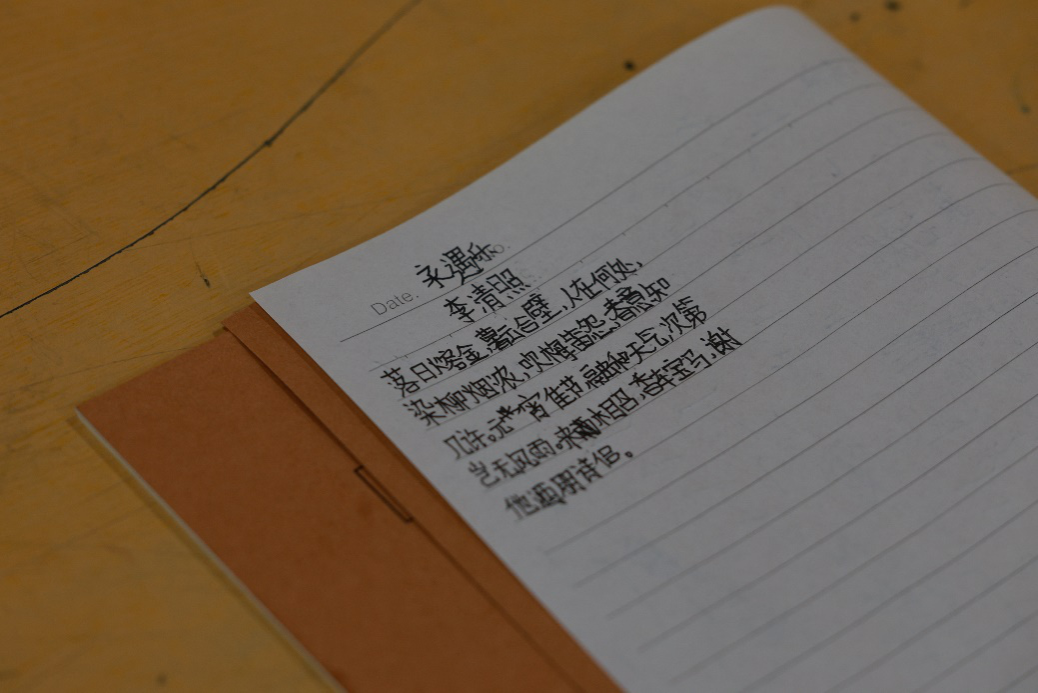 Date.
永遇乐
李清照
落日熔金,暮云合壁,人在何处,
染柳烟浓,吹梅笛怨,春意知
几许。元宵佳节,融和天气,次第
岂无风雨。来相召,香车宝马,谢
他酒朋诗侣。